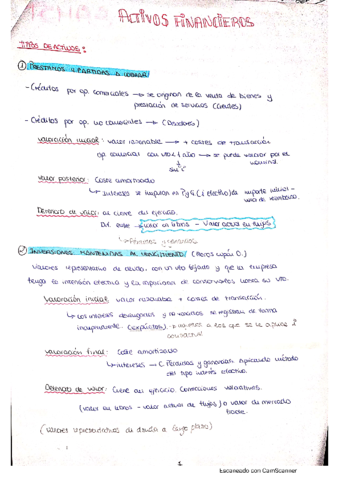 ACTIVOS FINANCIEROS
TIPOS DE ACTIVOS:
① PRÉSTAMOS Y PARTIDAS A COBRAR
- Créditos por op. comerciales → se originan de la venta de bienes y
prestación de servicios (clientes)
- Créditos por op. no comerciales → (Deudores)
Valoración inicial: valor razonable → + costes de transacción
op. comercial con vto < 1 año → se puede valorar por el
nominal
sin i
Valor posterior: Coste amortizado
↳ Intereses se imputan en PyG (i efectivo)
Deterioro de valor: al cierre del ejercicio.
valor en libros - valor actual flujos
↳ Pérdidas y ganancias
② INVERSIONES MANTENIDAS AL VENCIMIENTO
Valores representativos de deuda, con un vto fijado y que la empresa
tenga la intención efectiva y la capacidad de conservarlos hasta su vto.
Valoración inicial: valor razonable + costes de transacción.
↳ Los intereses devengados y no vencidos se registran de forma
independiente. (explícitos)
Valoración final: Coste amortizado
↳ intereses → C. Pérdidas y ganancias aplicando método
del tipo interés efectivo.
Deterioro de valor: Cierre del ejercicio. Correcciones valorativas.
(valor en libros - valor actual de flujos) o valor de mercado
(valores representativos de deuda a largo plazo)
1
Escaneado con CamScanner